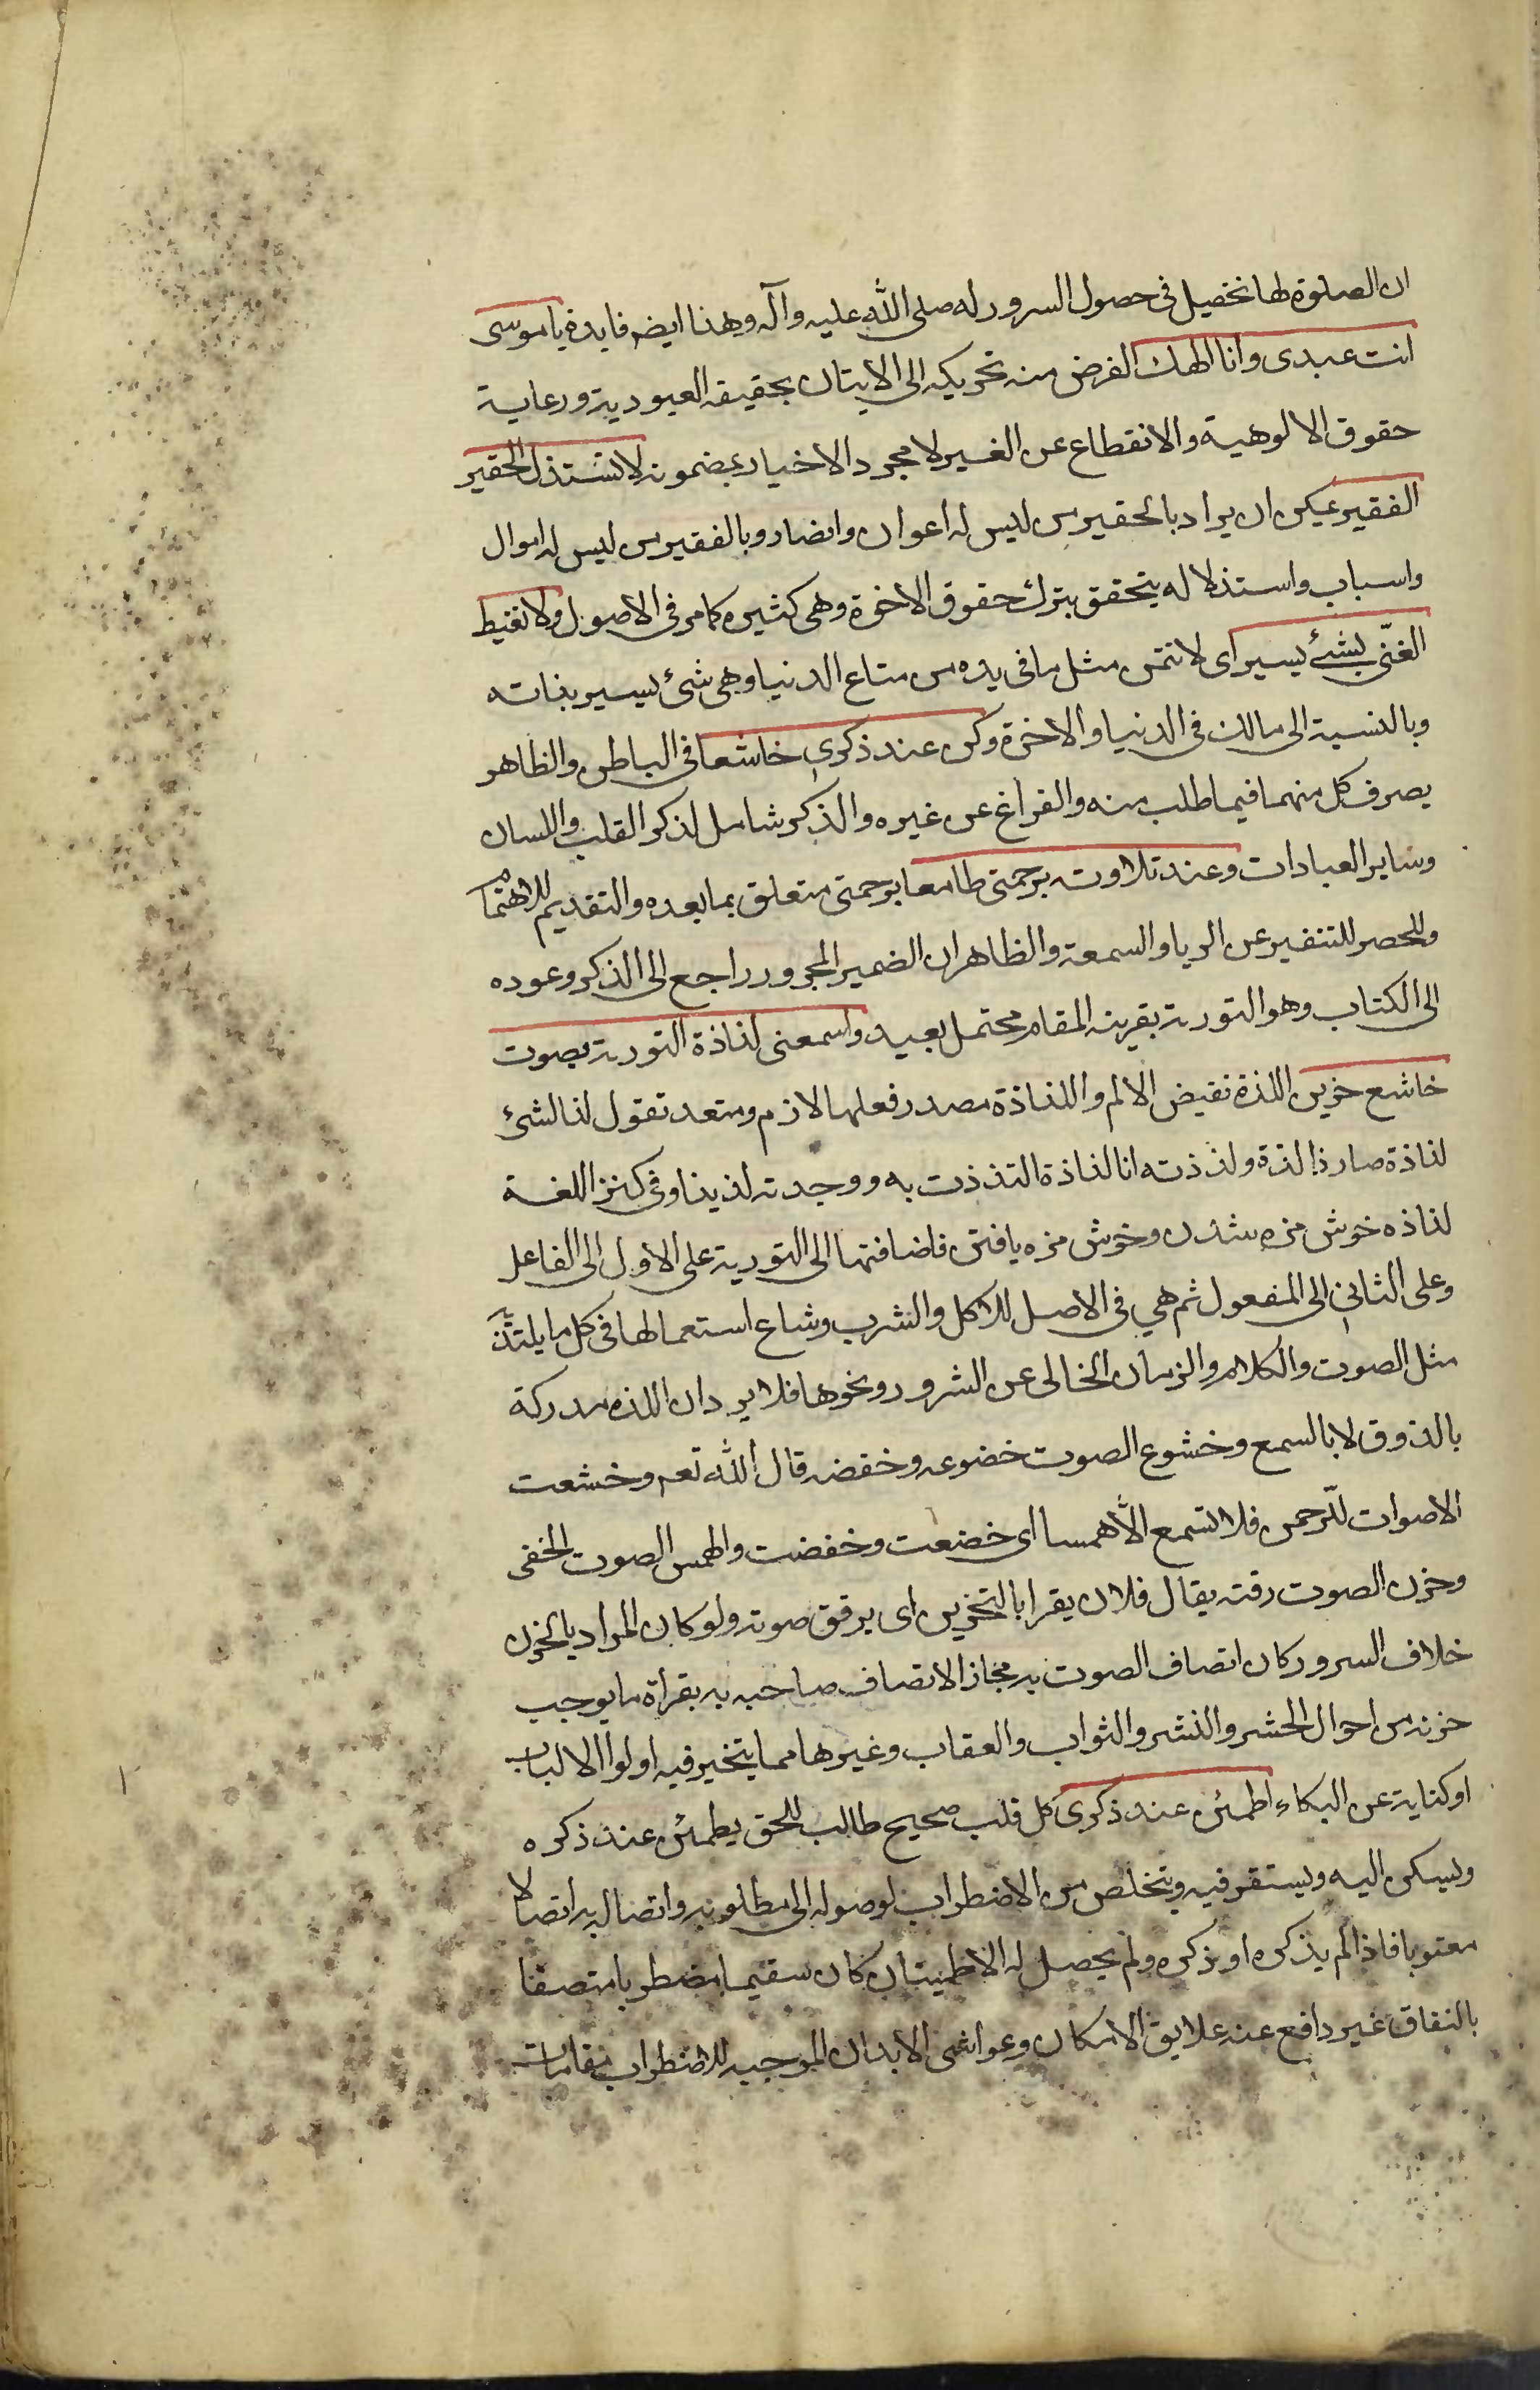 ان الصلوة لها تحصيل فى حصول السرور له صلى الله عليه وآله وهذا ايضر فايدة ياموسى
انت عبدى وانا الهك الغرض منه تحريكه الى الايتان بحقيقه العبودية ورعاية
حقوق الالوهية والانقطاع عن الغير لا مجرد الاخبار بمضمونه لا تستذل الحقير
الفقير يمكن ان يراد بالحقير من ليس له اعوان وانصار وبالفقير من ليس له اموال
واسباب واستذلاله يتحقق بترك حقوق الاخوة وهى كثيره كما مر فى الاصول ولا تغبط
الغنّى بشئ يسير اى لا تتمن مثل ما فى يده من متاع الدنيا وهى شئ يسير بذاته
وبالنسبة الى مالك فى الدنيا والاخرة وكن عند ذكرى خاشعا فى الباطن والظاهر
يصرف كل منهما فيما طلب منه والفراغ عن غيره والذكر شامل لذكر القلب واللسان
وساير العبادات وعند تلاوته برحمتى طامعا برحمتى متعلق بما بعده والتقديم للاهتمام
وللحصر للتنفير عن الريا والسمعة والظاهر ان الضمير المجرور راجع الى الذكر وعوده
الى الكتاب وهو التورية بقرينه المقام محتمل بعيد واسمعنى لذاذة التورية بصوت
خاشع حزين اللذة نقيض الالم واللذاذة مصدر فعلها لازم ومتعد تقول لذ الشئ
لذاذة صار ذا لذة ولذذته انا لذاذة التذذت به ووجدته لذيذا وفى كنز اللغة
لذاذه خوش مزه شدن وخوش مزه يافتن فاضافتها الى التورية على الاول الى الفاعل
وعلى الثانى الى المفعول ثم هي فى الاصل للاكل والشرب وشاع استعمالها فى كل ما يلتذّ
مثل الصوت والكلام والزمان الخالى عن الشرور ونحوها فلا يرد ان اللذه مدركة
بالذوق لا بالسمع وخشوع الصوت خضوعه وخفضه قال الله تعر وخشعت
الاصوات للّرحمن فلا تسمع الّا همسا اى خضعت وخفضت والهمس الصوت الخفى
وحزن الصوت رقته يقال فلان يقرا بالتحزين اى يرقق صوته ولو كان المراد بالحزن
خلاف السرور كان اتصاف الصوت به مجاز الاتصاف صاحبه به بقراة ما يوجب
حزنه من احوال الحشر والنشر والثواب والعقاب وغيرها مما يتحير فيه اولوا الالباب
او كناية عن البكاء اطمئن عند ذكرى كل قلب صحيح طالب للحق يطمئن عند ذكره
ويسكن اليه ويستقر فيه ويتخلص من الاضطراب لوصوله الى مطلوبه واتصاله به اتصالا
معنويا فاذا لم يذكره او ذكره ولم يحصل له الاطمينان كان سقيما مضطربا متصفا
بالنفاق غير دافع عنه علايق الامكان وغواشى الابدان الموجبه للاضطراب